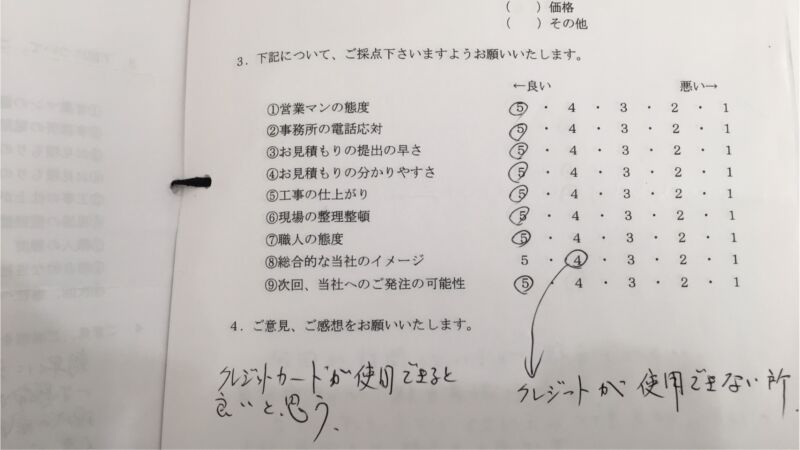 （　）価格
（　）その他
3．下記について、ご採点下さいますようお願いいたします。
←良い　悪い→
①営業マンの態度　5・4・3・2・1
②事務所の電話応対　5・4・3・2・1
③お見積もりの提出の早さ　5・4・3・2・1
④お見積もりの分かりやすさ　5・4・3・2・1
⑤工事の仕上がり　5・4・3・2・1
⑥現場の整理整頓　5・4・3・2・1
⑦職人の態度　5・4・3・2・1
⑧総合的な当社のイメージ　5・4・3・2・1
⑨次回、当社へのご発注の可能性　5・4・3・2・1
4．ご意見、ご感想をお願いいたします。
クレジットカードが使用できると
良いと、思う、
クレジットが使用できない所、